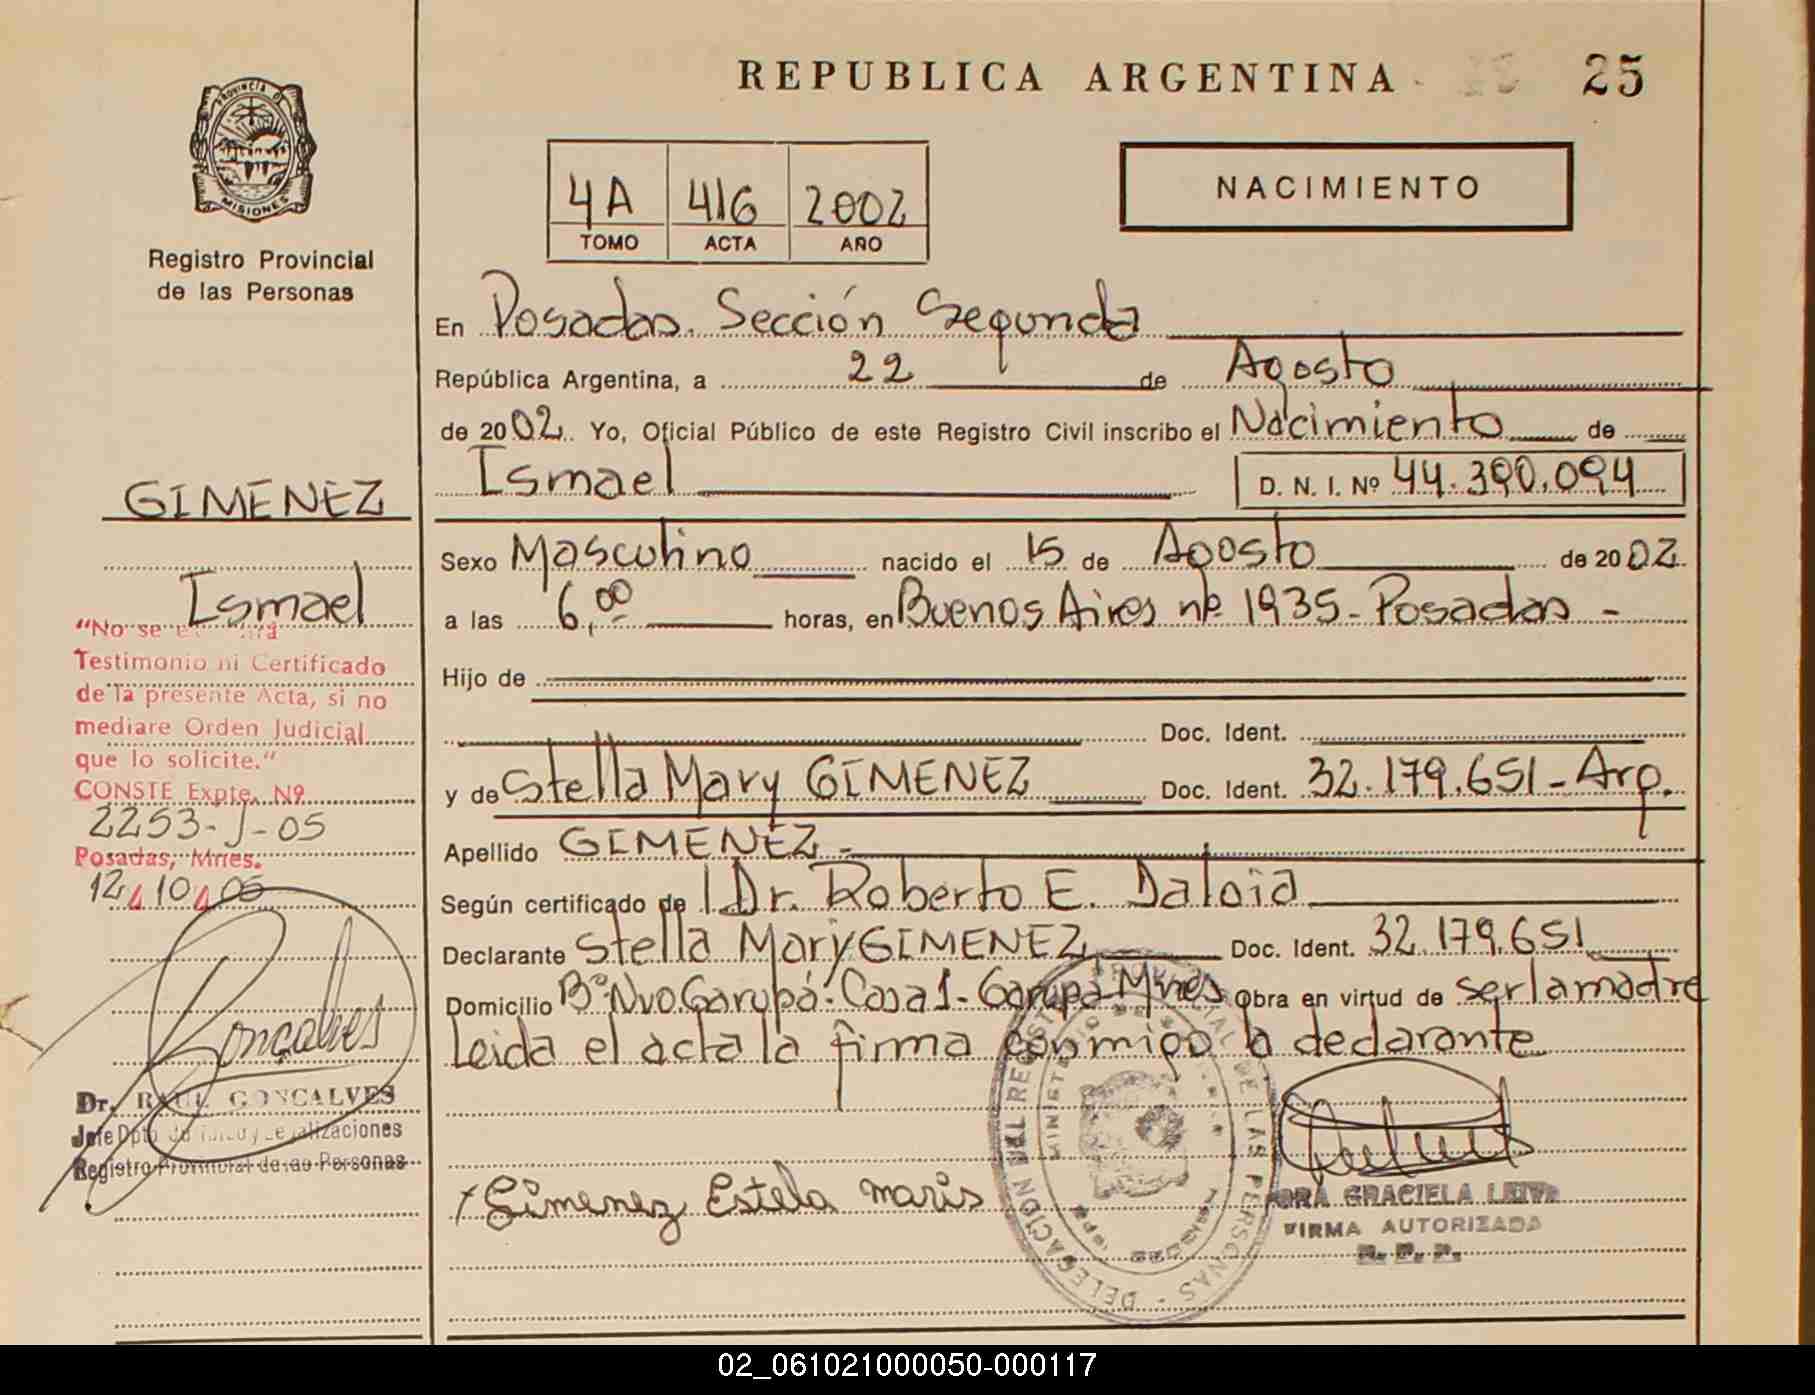 REPUBLICA ARGENTINA
25
PROVINCIA DE
MISIONES
Registro Provincial
de las Personas
4A 416 2002
TOMO ACTA AÑO
NACIMIENTO
En Posadas. Sección Segunda
República Argentina, a 22 de Agosto
de 2002. Yo, Oficial Público de este Registro Civil inscribo el Nacimiento de
Ismael D. N. I. Nº 44.390.094
GIMENEZ
Ismael
Sexo Masculino nacido el 15 de Agosto de 2002
a las 6,00 horas, en Buenos Aires nº 1935 - Posadas -
Hijo de
Doc. Ident.
y de Stella Mary GIMENEZ Doc. Ident. 32.179.651 - Arg.
Apellido GIMENEZ -
Según certificado de Dr. Roberto E. Daloia
Declarante Stella Mary GIMENEZ Doc. Ident. 32.179.651
Domicilio Bº. Nvo. Garupá - Casa 1 - Garupá Mnes Obra en virtud de ser la madre
Leida el acta la firma conmigo la declarante
"No se
Testimonio ni Certificado
de la presente Acta, si no
mediare Orden Judicial
que lo solicite."
CONSTE Expte. Nº
2253-J-05
Posadas, Mnes.
12 10 05
Goncalves
Dr. RAUL GONCALVES
Jefe Dpto
Registro Provincial de las Personas
Gimenez Estela maris
DELEGACION DEL REGISTRO PROVINCIAL DE LAS PERSONAS
MINISTERIO DE
DRA GRACIELA LEIVA
FIRMA AUTORIZADA
R. P. P.
02_061021000050-000117